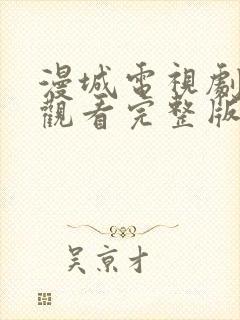 漫城電視劇
觀看完整版
吳京才